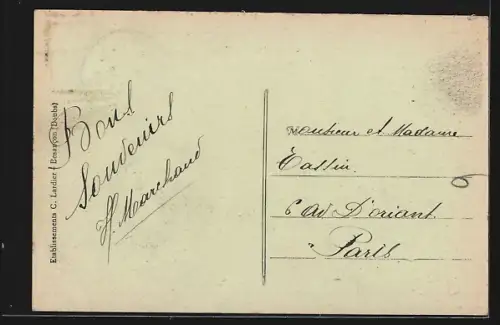 Bons
Souvenirs
H. Marchand
Monsieur et Madame
Tassin.
6 av D'oriant
Paris
Etablissements C. Lardier - Besançon (Doubs)